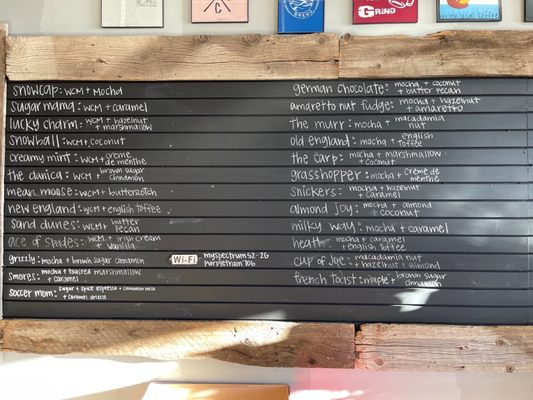 GRIND
snowcap: WCM + mocha
sugar mama: WCM + caramel
lucky charm: WCM + hazelnut
+ marshmallow
snowball: WCM + coconut
creamy mint: WCM + creme
de menthe
the danica: WCM + brown sugar
cinnamon
mean moose: WCM + butterscotch
new england: WCM + english toffee
sand dunes: WCM + butter
pecan
ace of spades: WCM + irish cream
+ vanilla
grizzly: mocha + brown sugar cinnamon
smores: mocha + toasted marshmallow
+ caramel
soccer mom: sugar + spice espresso + cinnamon milk
+ caramel drizzle
Wi-Fi
myspectrum52-2G
purpletrain706
german chocolate: mocha + coconut
+ butter pecan
amaretto nut fudge: mocha + hazelnut
+ amaretto
the murr: mocha + macadamia
nut
old england: mocha + english
toffee
the carp: mocha + marshmallow
+ coconut
grasshopper: mocha + crème de
menthe
snickers: mocha + hazelnut
+ caramel
almond joy: mocha + almond
+ coconut
milky way: mocha + caramel
heath: mocha + caramel
+ english toffee
cup of joe: macadamia nut
+ hazelnut + almond
french toast: maple + brown sugar
cinnamon